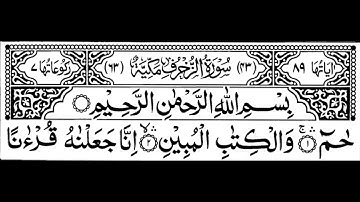 اٰيَاتُهَا ٨٩ (٤٣) سُوْرَةُ الزُّخْرُفِ مَكِّيَّةٌ (٦٣) رُكُوْعَاتُهَا ٧
بِسْمِ اللهِ الرَّحْمٰنِ الرَّحِيْمِ
حٰمٓ ۚۛ ۝١ وَالْكِتٰبِ الْمُبِيْنِ ۙۛ ۝٢ اِنَّا جَعَلْنٰهُ قُرْءٰنًا